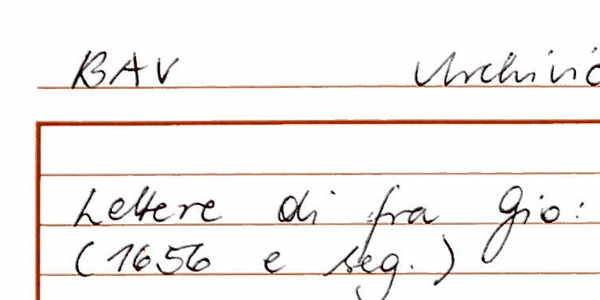 BAV Archivio
Lettere di fra Gio:
(1656 e seg.)